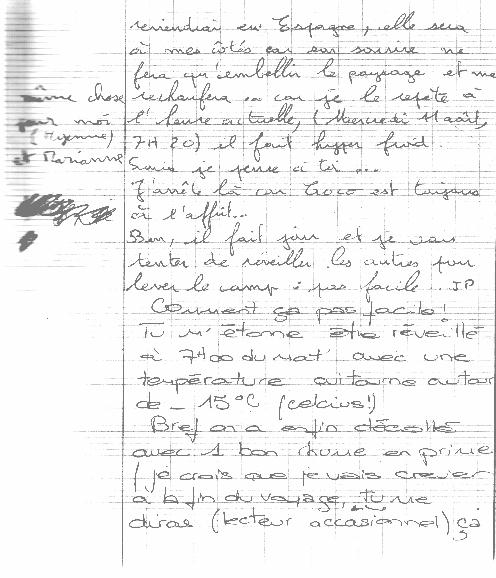 reviendrai en Espagne, elle sera
à mes côtés car son sourire ne
fera qu'embellir le paysage et me
rechaufera... car je le repète à
l'heure actuelle, (Mercredi 11 août,
7H20) il fait hyper froid.
Sinon je pense à toi...
J'arrête là car Coco est toujours
à l'affût...
Bon, il fait jour et je vais
tenter de réveiller les autres pour
lever le camp : pas facile... JP
même chose
pour moi
(Hyenne)
et Marianne
Comment ça pas facile!
Tu m'étonne être réveillé
à 7H00 du mat' avec une
température qui tourne autour
de - 15°C (celcius!)
Bref on a enfin décollé
avec 1 bon rhume en prime
(je crois que je vais crever
à la fin du voyage, tu me
diras (lecteur accasionnel) ça